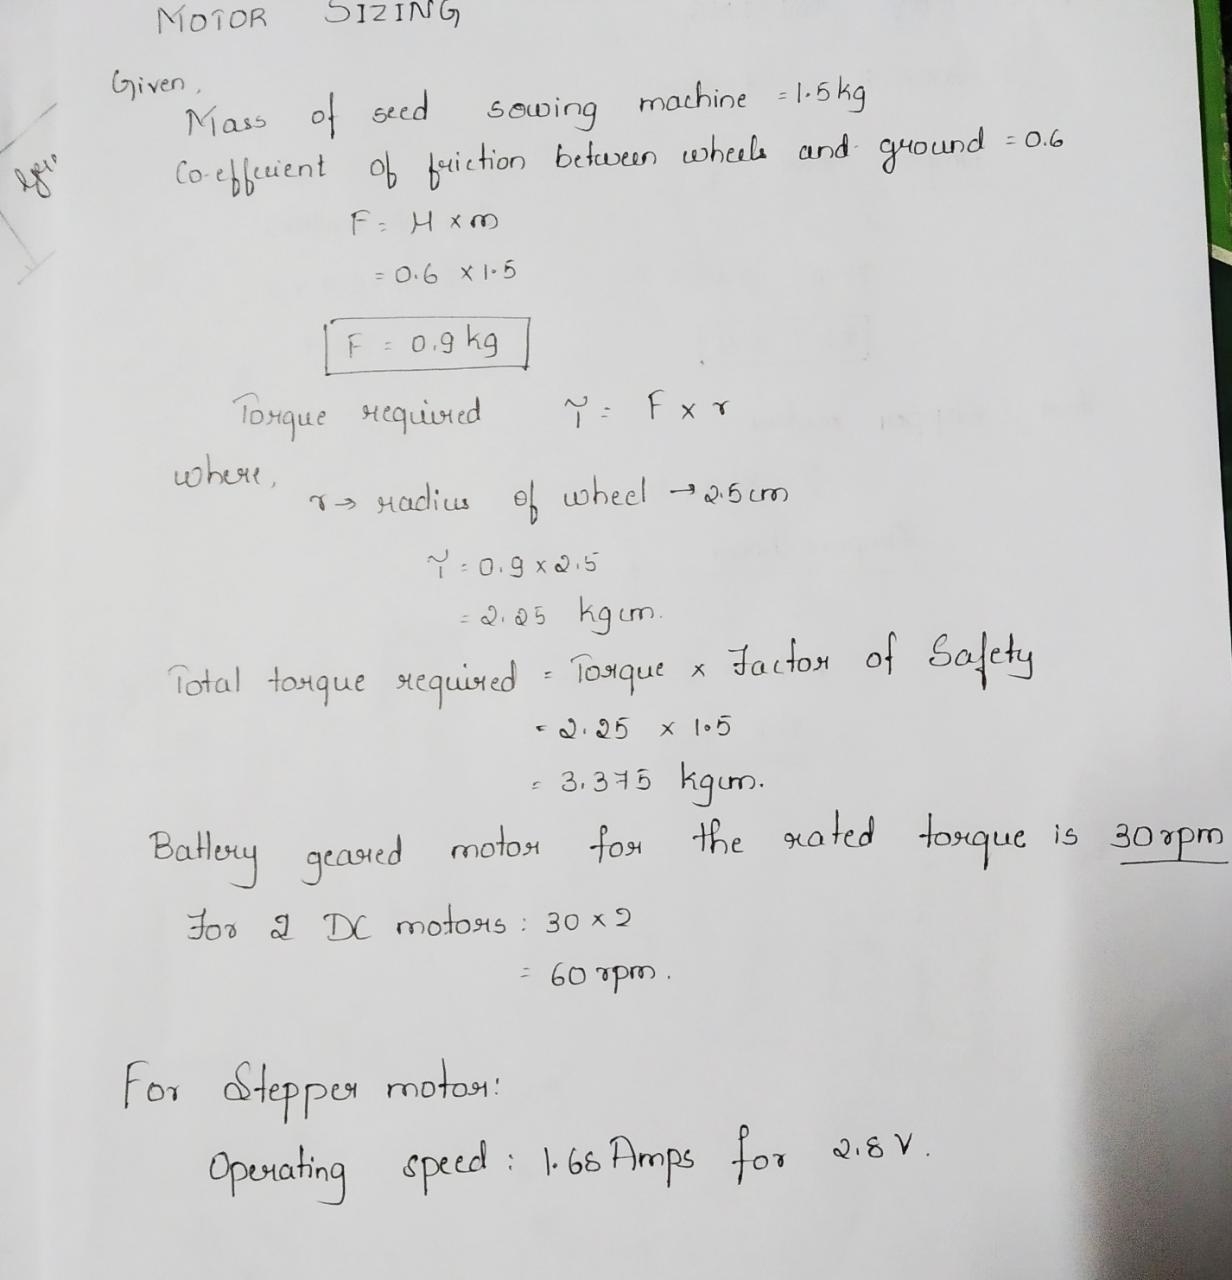 MOTOR SIZING
Given,
Mass of seed sowing machine = 1.5 kg
Co-effcient of friction between wheels and ground = 0.6
F = μ × m
= 0.6 × 1.5
F = 0.9 kg
Torque required T = F × r
where,
r → radius of wheel → 2.5 cm
T = 0.9 × 2.5
= 2.25 kgcm.
Total torque required = Torque × Factor of Safety
= 2.25 × 1.5
= 3.375 kgcm.
Battery geared motor for the rated torque is 30 rpm
For 2 DC motors : 30 × 2
= 60 rpm.
For Stepper motor:
Operating speed : 1.68 Amps for 2.8 V.